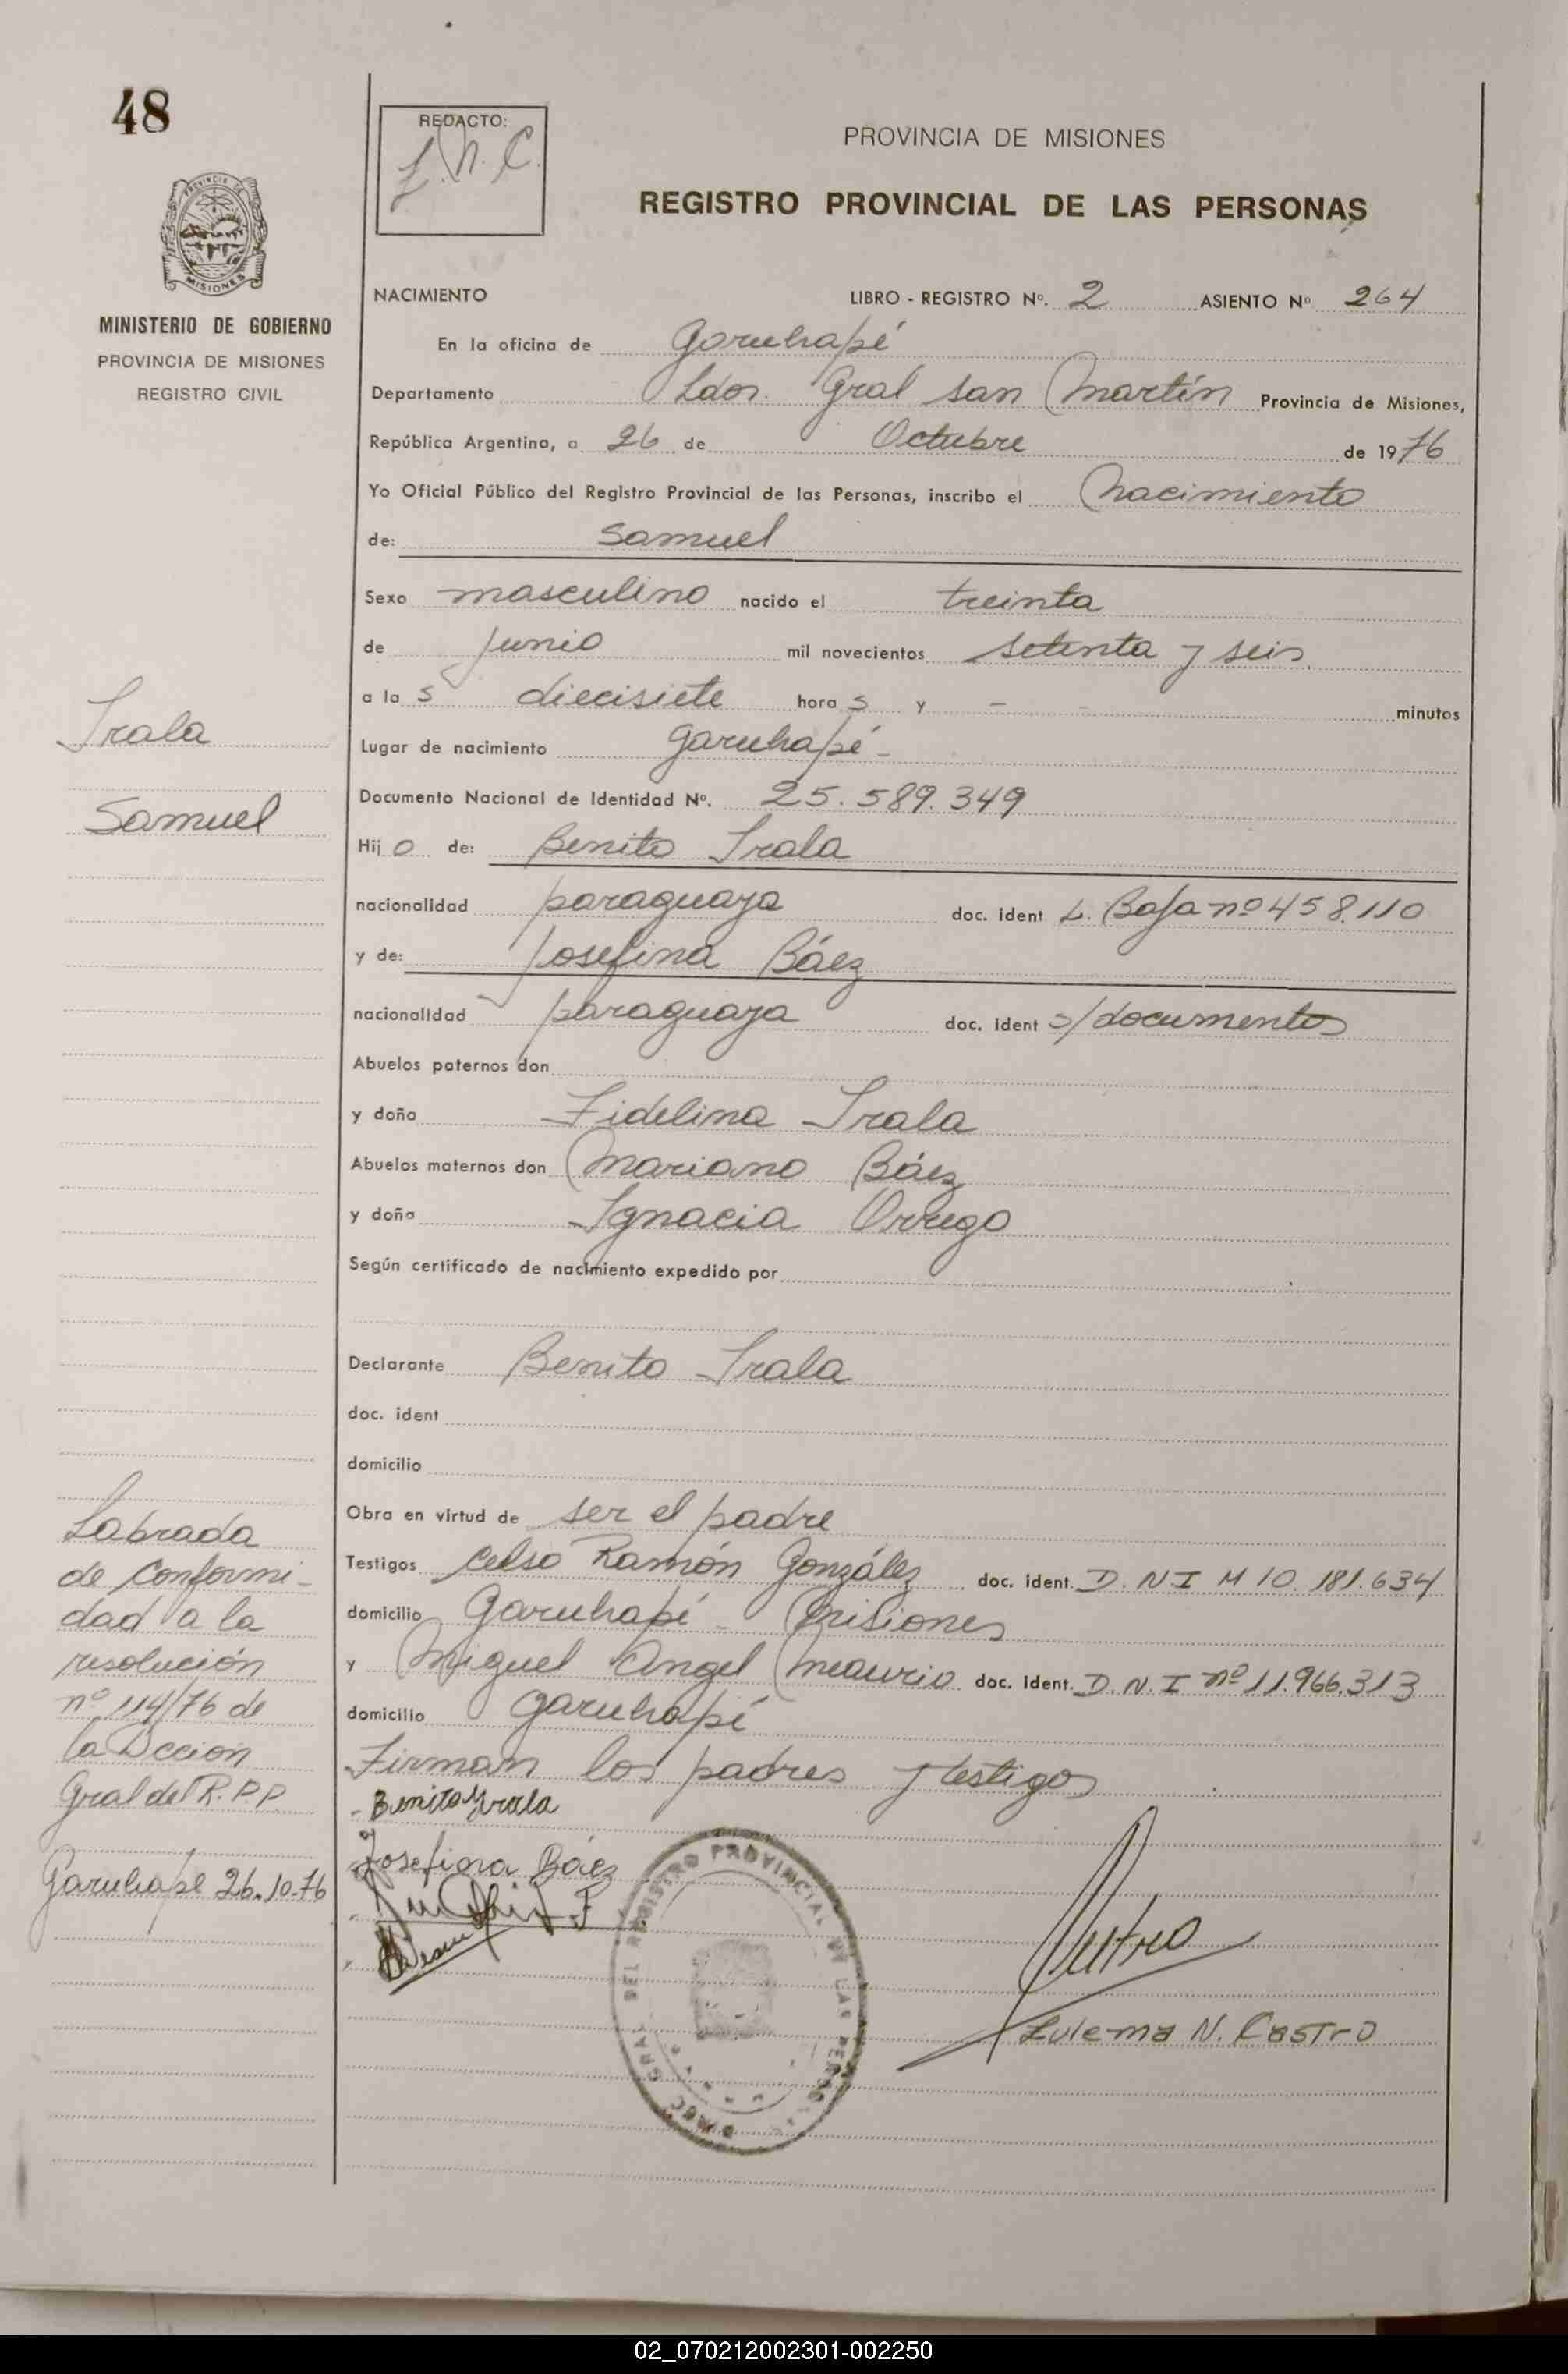 48
REDACTO:
Z.N.C.
PROVINCIA DE MISIONES
REGISTRO PROVINCIAL DE LAS PERSONAS
PROVINCIA DE
MISIONES
MINISTERIO DE GOBIERNO
PROVINCIA DE MISIONES
REGISTRO CIVIL
NACIMIENTO LIBRO - REGISTRO Nº. 2 ASIENTO Nº 264
En la oficina de Garuhapé
Departamento Ldor. Gral San Martín Provincia de Misiones,
República Argentina, a 26 de Octubre de 1976
Yo Oficial Público del Registro Provincial de las Personas, inscribo el Nacimiento
de: Samuel
Sexo masculino nacido el treinta
de junio mil novecientos setenta y seis
a la s diecisiete hora s y - minutos
Lugar de nacimiento Garuhapé -
Documento Nacional de Identidad Nº. 25.589.349
Hij o de: Benito Irala
nacionalidad paraguaya doc. ident L. Baja nº 458.110
y de: Josefina Báez
nacionalidad paraguaya doc. ident s/documentos
Abuelos paternos don
y doña Fidelina Irala
Abuelos maternos don Mariano Báez
y doña Ignacia Orrego
Según certificado de nacimiento expedido por
Declarante Benito Irala
doc. ident
domicilio
Obra en virtud de ser el padre
Testigos Celso Ramón González doc. ident. D.N.I M 10.181.634
domicilio Garuhapé - Misiones
y Miguel Angel Meaurio doc. ident. D.N.I nº 11.966.313
domicilio Garuhapé
Firman los padres y testigos
- Benito Yrala
Josefina Báez
Zulema N. Castro
Irala
Samuel
Labrada
de conformi-
dad a la
resolución
nº 114/76 de
la Dccion
Gral del R.P.P
Garuhapé 26.10.76
DIREC GRAL DEL REGISTRO PROVINCIAL DE LAS PERSONAS
02_070212002301-002250